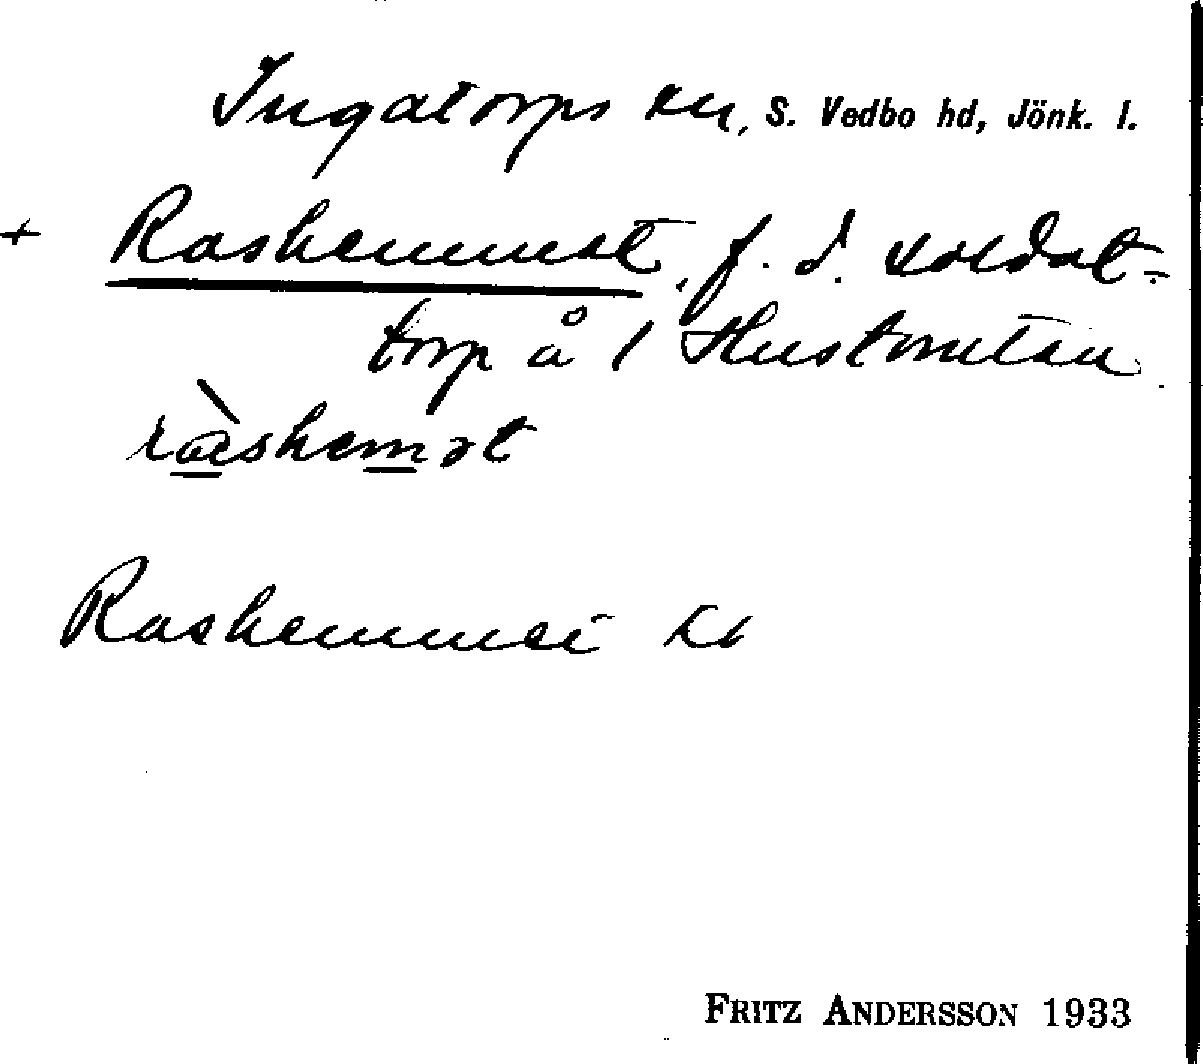 Ingatorps sn, S. Vedbo hd, Jönk. l.
+ Raskemmet, f. d. soldat-
torp å 1 Hustomtan
raskemət
Raskemmet
FRITZ ANDERSSON 1933